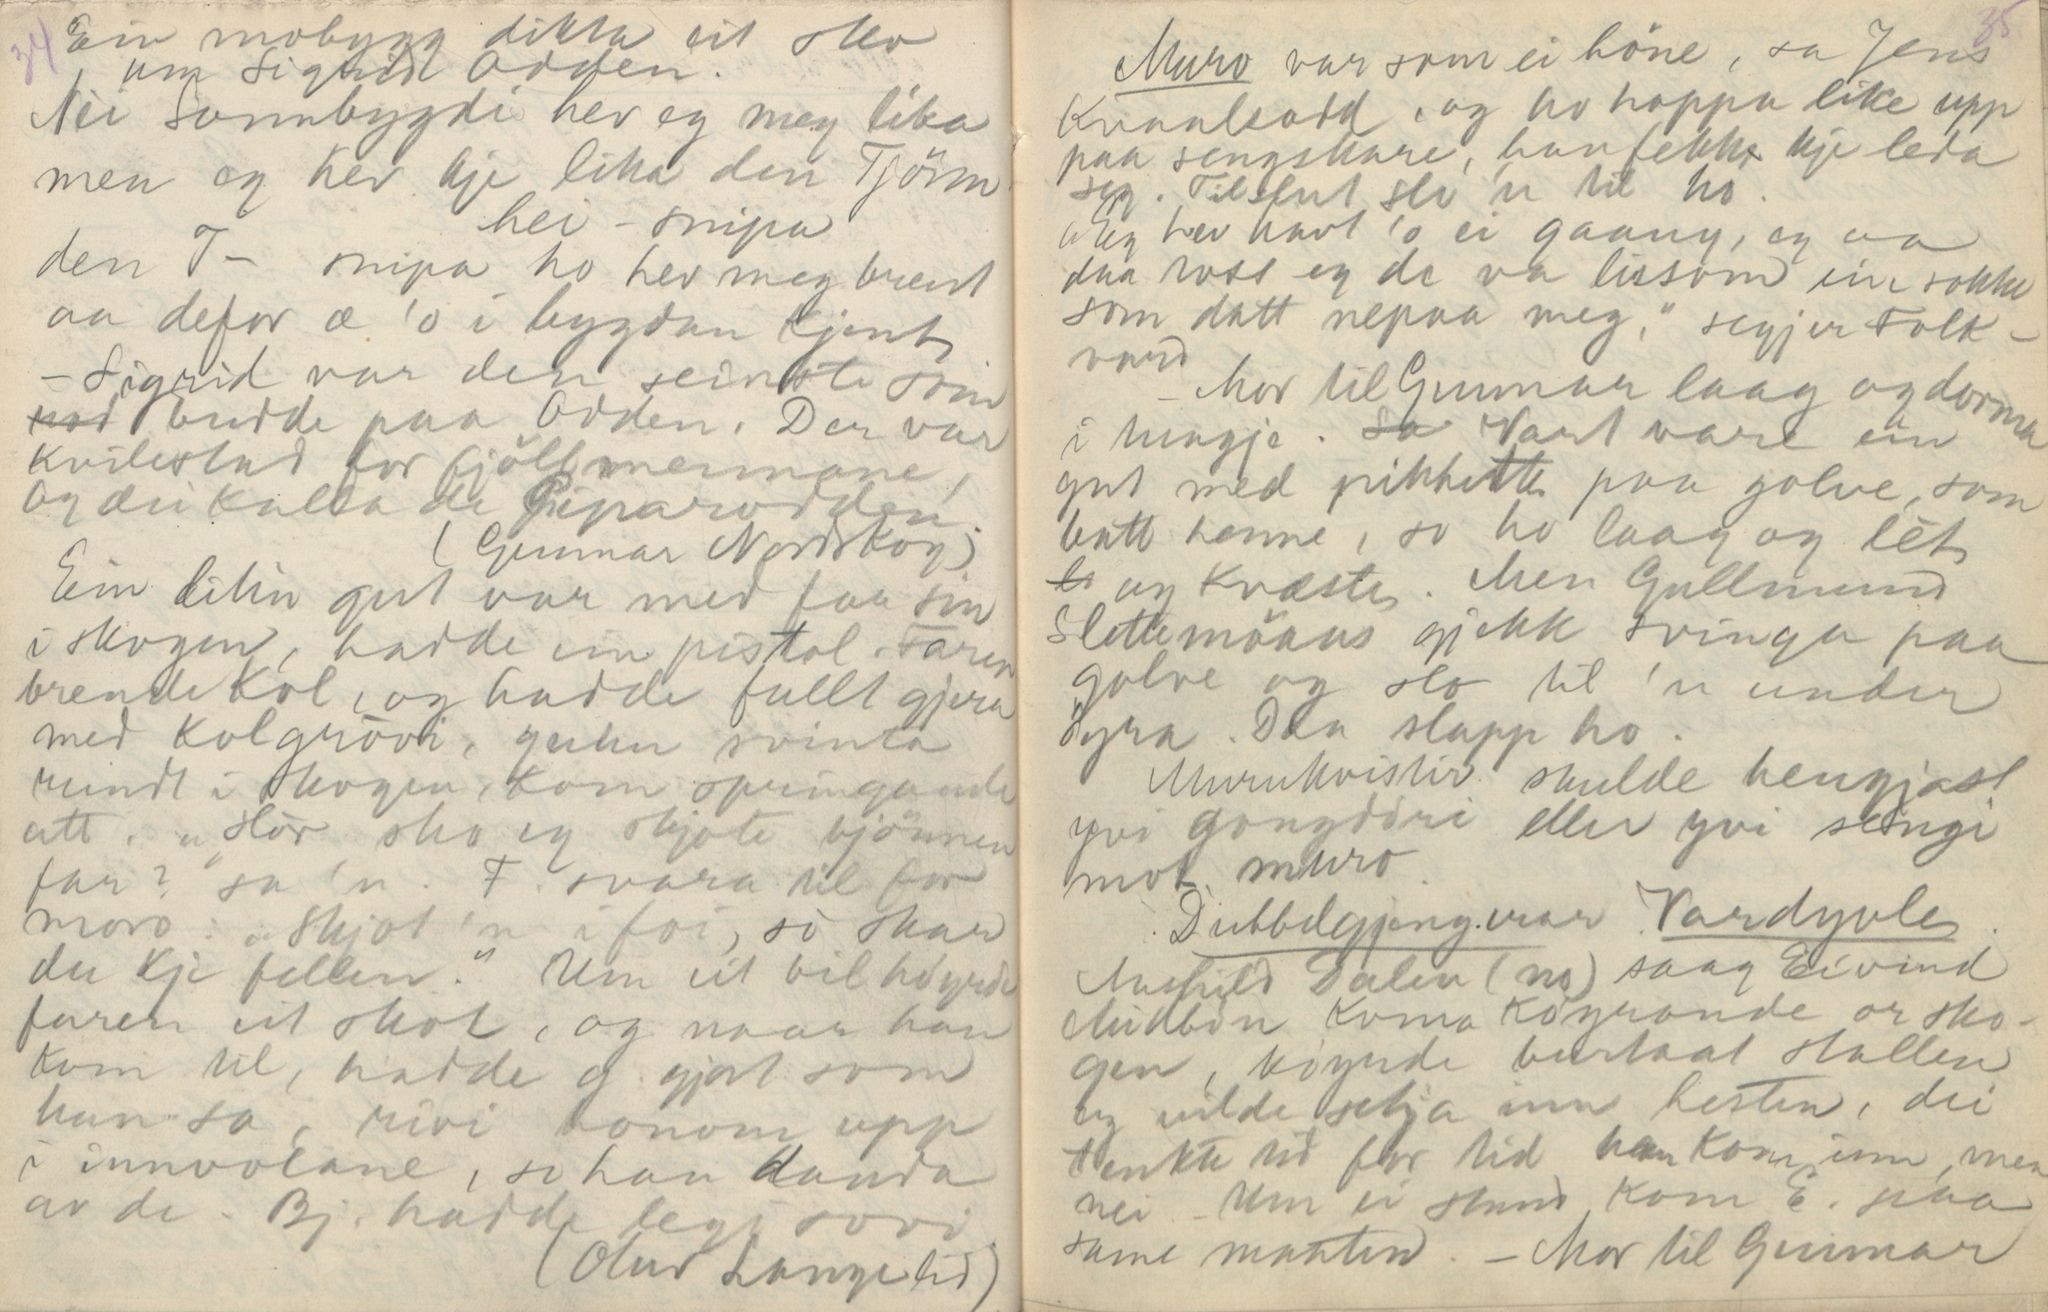 34
Ein mobygg dikta eit stev
um Sigrid Odden.
Nei Sonnbygdi hev eg meg lika
men eg hev kje lika den Tjörn
hei-snipa
den T- snipa ho hev meg brent
aa defor æ 'o i bygdan kjent
- Sigrid var den seinste som
budde paa Odden. Der var
kvilestad for fjöllmennane,
og dei kalla de Piparodden.
(Gunnar Nordskog)
Ein liten gut var med far sin
i skogen, hadde ein pistol. Faren
brende kol, og hadde fullt gjera
med kolgrövi, guten svinta
rundt i skogen, kom springande
att. "Hór sko eg skjote bjönnen
far?" sa 'n. F. svara til for
moro: "Skjot 'n i foi, so skar
du kje fellen." Um eit bil höyrde
faren eit skot, og naar han
kom til, hadde g. gjort som
han sa, rivi honom upp
i innvolane, so han dauda
av de. Bj. hadde legi sovi
(Olav Langelid)
35
Muro var som ei höne, sa Jens
Kvaalsodd, og ho hoppa like upp
paa sengskare, han fekk kje leda
seg. Tilslut sló 'n til ho.
"Eg hev havt 'o ei gaang, eg aa
daa tost eg de va lissom ein sokke
som datt nepaa meg," segjer Folk-
vard
- Mor til Gunnar laag og dorma
i sengje. So vart vare ein
gut med pikhette paa golve, som
batt henne, so ho laag og lét
og kvæste. Men Gullmund
Slettemöaas gjekk svinga paa
golve og slo til 'n under
öyra. Daa slapp ho.
Murukvister skulde hengjast
yvi gongdöri eller yvi sengi
mot muro.
Dubbelgjengerar Vardyvle
Maghild Dalen (no) saag Eivind
Midbön koma köyrande or sko-
gen, köyrde burtaat stallen
og vilde setja inn hesten, dei
tenkte tid for tid han kom inn, men
nei - Um ei stund kom E. paa
same maaten. - Mor til Gunnar